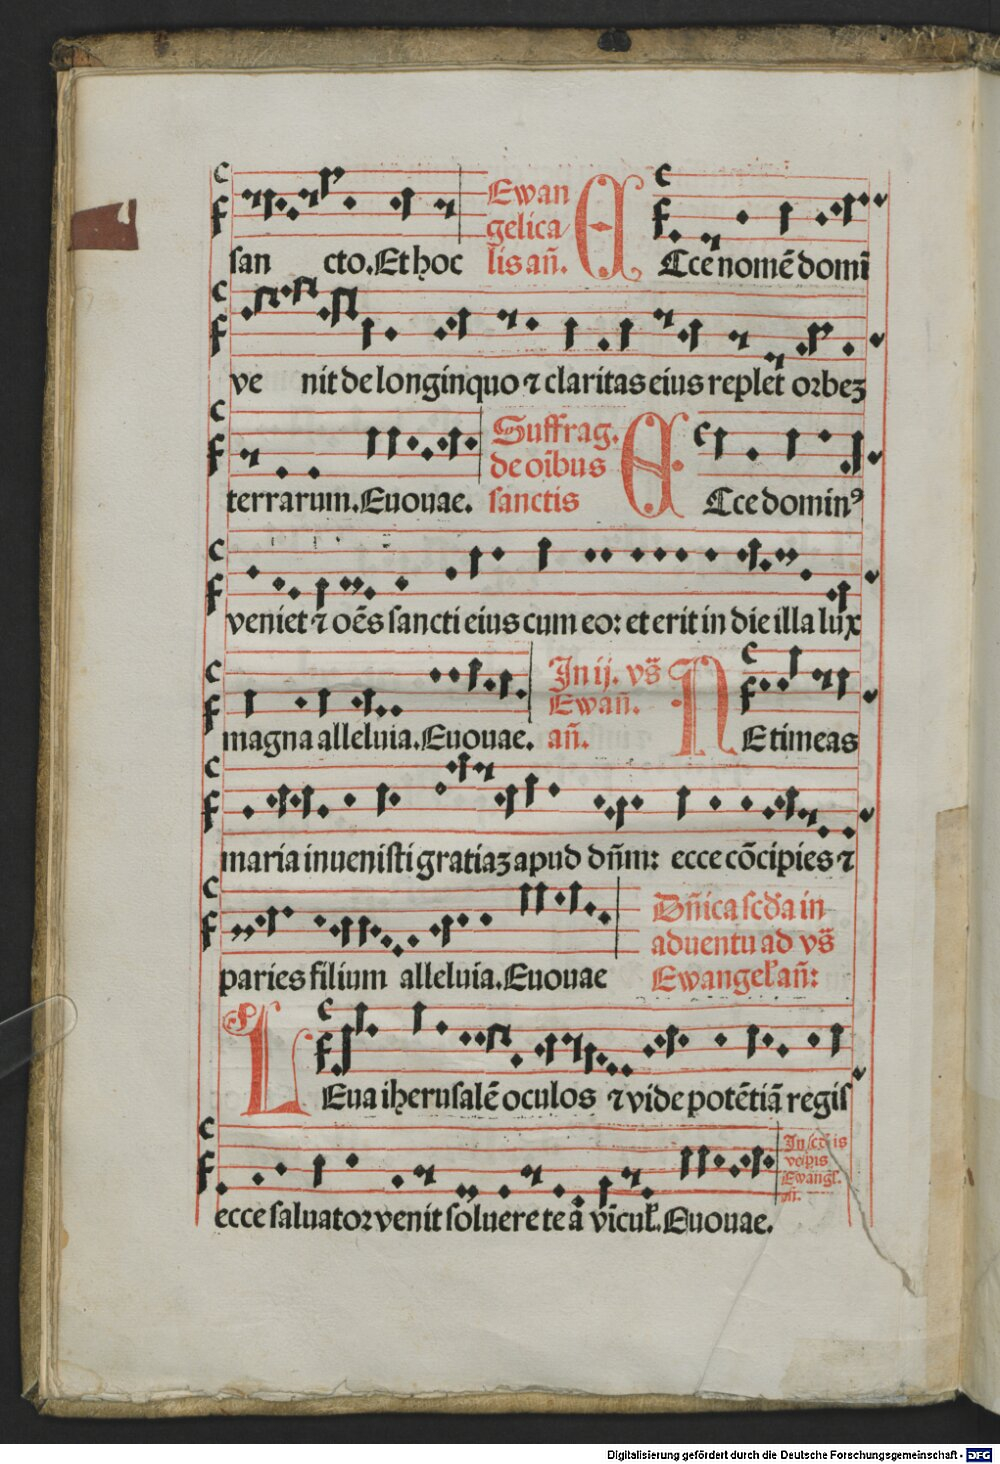 san cto. Et hoc
Ewan
gelica/
lis añ.
E Cce nomē domi
ve nit de longinquo ⁊ claritas eius replet orbeꝫ
terrarum. Euouae.
Suffrag.
de oībus
sanctis
E Cce dominꝰ
veniet ⁊ oēs sancti eius cum eo: et erit in die illa lux
magna alleluia. Euouae.
In ij. vs̄
Ewañ.
añ.
N E timeas
maria inuenisti gratiaꝫ apud dñm: ecce cōcipies ⁊
paries filium alleluia. Euouae
Dñica scḋa in
aduentu ad vs̄
Ewangel̄ añ:
L Eua iherusalē oculos ⁊ vide potētiā regis
ecce saluator venit soluere te a vīcul̄. Euouae.
In scḋis
vesp̄is
Ewangl̄.
añ.
Digitalisierung gefördert durch die Deutsche Forschungsgemeinschaft - DFG